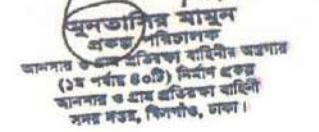 সুলতানির মামুন
প্রকল্প পরিচালক
আনসার ও গ্রাম প্রতিরক্ষা বাহিনীর অস্ত্রাগার
(১ম পর্যায় ৪০টি) নির্মাণ প্রকল্প
আনসার ও গ্রাম প্রতিরক্ষা বাহিনী
সদর দপ্তর, খিলগাঁও, ঢাকা।